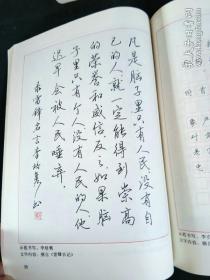 凡是脑子里只有人民没有自
己的人就一定能得到崇高
的荣誉和威信反之如果脑
子里只有个人没有人民的人他
迟早会被人民唾弃.
录雷锋名言
文字内容,摘自《雷锋日记》